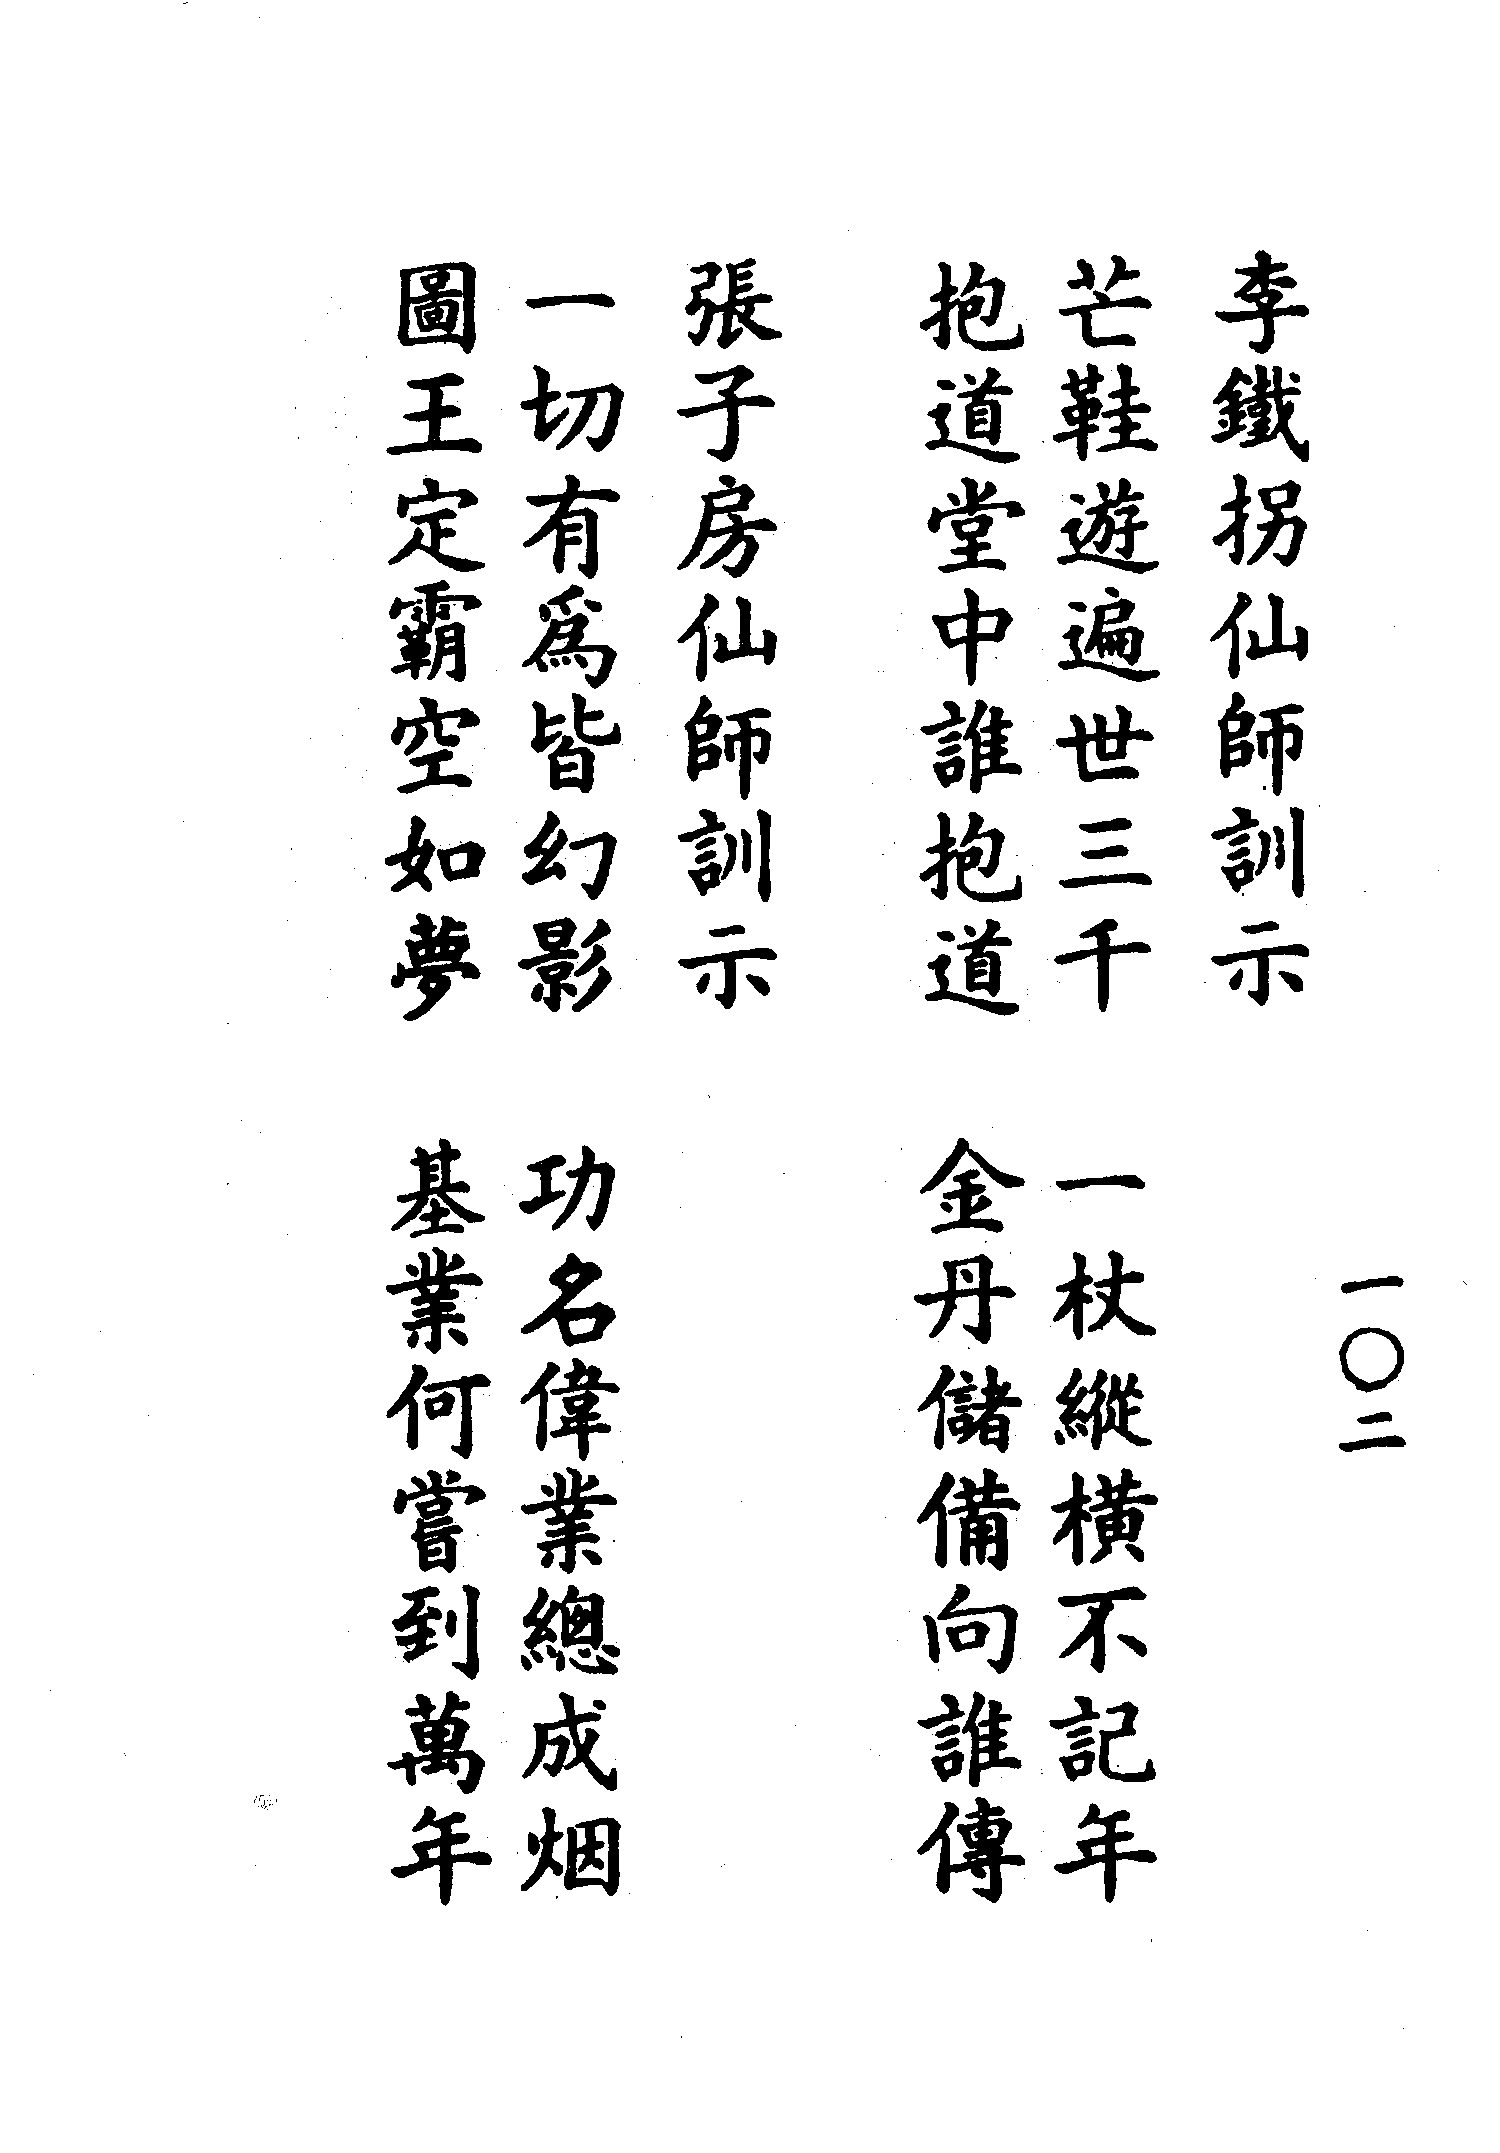 一〇二
李鐵拐仙師訓示
芒鞋遊遍世三千　一杖縱橫不記年
抱道堂中誰抱道　金丹儲備向誰傳
張子房仙師訓示
一切有爲皆幻影　功名偉業總成烟
圖王定霸空如夢　基業何嘗到萬年